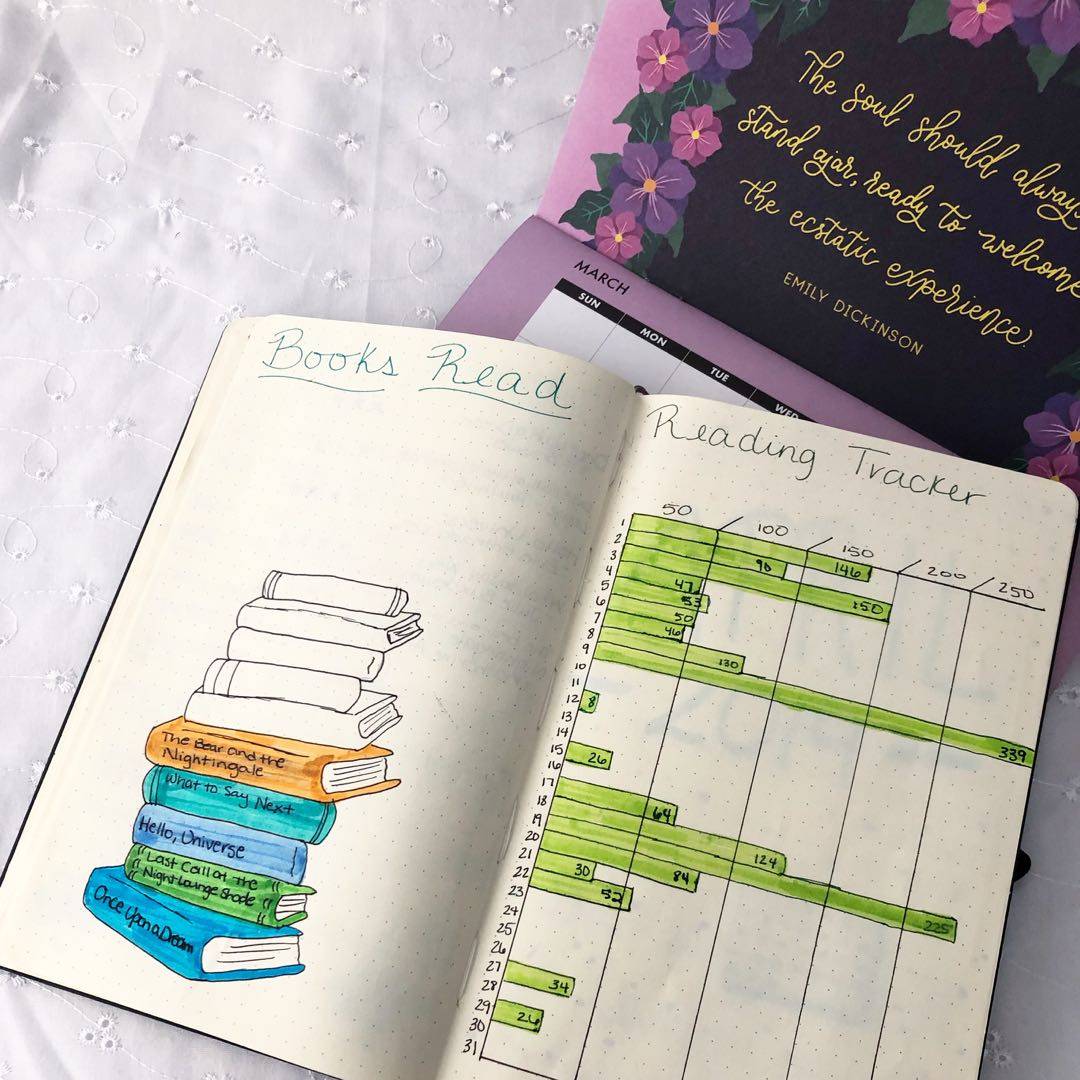 The soul should always
stand ajar, ready to welcome
the ecstatic experience.
EMILY DICKINSON
MARCH
SUN
MON
TUE
WED
Books Read
The Bear and the
Nightingale
What to Say Next
Hello, Universe
Last Call at the
Night Lounge
Once Upon a Dream
Reading Tracker
50 100 150 200 250
1
2 146
3 90
4 150
5 47
6 53
7 50
8 46
9 130
10 339
11
12 8
13
14
15 26
16
17
18 64
19 124
20 225
21 84
22 30
23 52
24
25
26
27
28 34
29
30
31